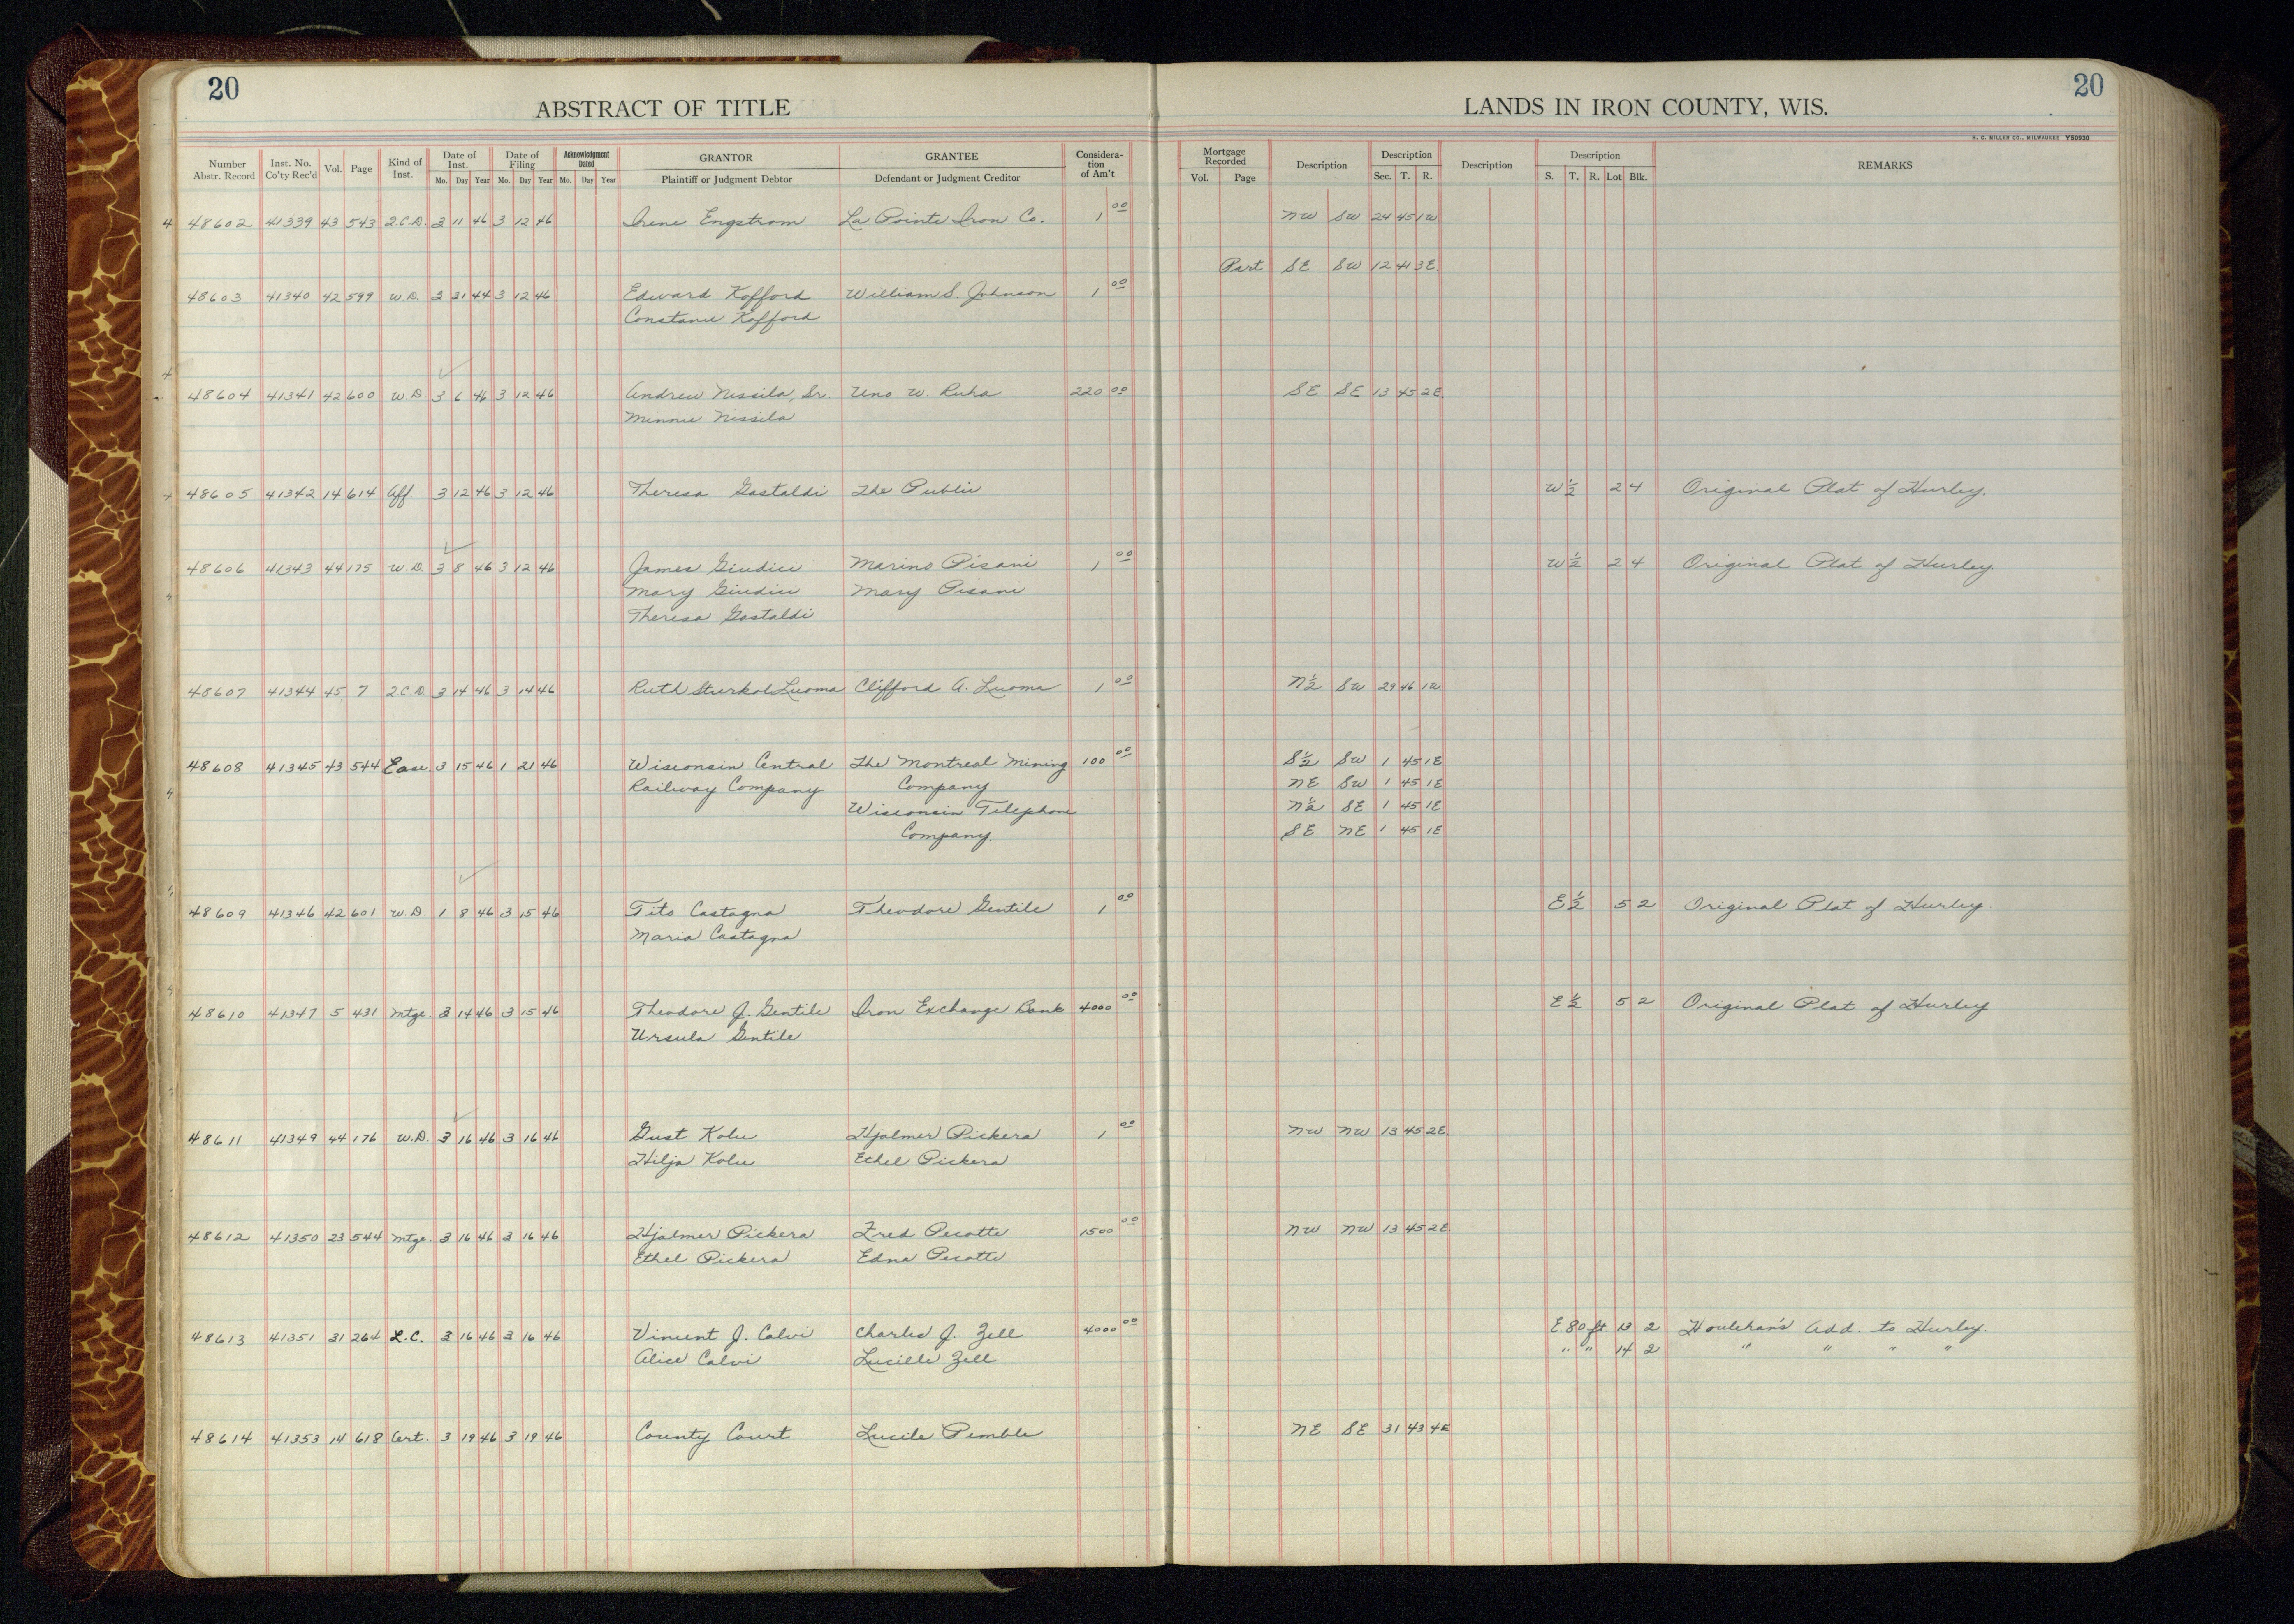 20
ABSTRACT OF TITLE
LANDS IN IRON COUNTY, WIS.
20
H. C. MILLER CO., MILWAUKEE Y50930
Number Abstr. Record Inst. No. Co'ty Rec'd Vol. Page Kind of Inst. Date of Inst. Mo. Day Year Date of Filing Mo. Day Year Acknowledgment Dated Mo. Day Year GRANTOR Plaintiff or Judgment Debtor GRANTEE Defendant or Judgment Creditor Consideration of Am't Mortgage Recorded Vol. Page Description Description Sec. T. R. Description Description S. T. R. Lot Blk. REMARKS
48602 41339 43 543 Q.C.D. 3 11 46 3 12 46 Irene Engstrom La Pointe Iron Co. 1 00 NW SW 24 45 1W
Part SE SW 12 41 3E
48603 41340 42 599 W.D. 3 31 44 3 12 46 Edward Kofford William S. Johnson 1 00
Constance Kofford
48604 41341 42 600 W.D. 3 6 46 3 12 46 Andrew Nissila, Sr. Uno W. Ruha 220 00 SE SE 13 45 2E
Minnie Nissila
48605 41342 14 614 Aff. 3 12 46 3 12 46 Theresa Gastaldi The Public W½ 2 4 Original Plat of Hurley.
48606 41343 44 175 W.D. 3 8 46 3 12 46 James Giudici Marino Pisani 1 00 W½ 2 4 Original Plat of Hurley
Mary Giudici Mary Pisani
Theresa Gastaldi
48607 41344 45 7 Q.C.D. 3 14 46 3 14 46 Ruth Sturkol Luoma Clifford A. Luoma 1 00 N½ SW 29 46 1W
48608 41345 43 544 Ease. 3 15 46 1 21 46 Wisconsin Central The Montreal Mining 100 00 S½ SW 1 45 1E
Railway Company Company NE SW 1 45 1E
Wisconsin Telephone N½ SE 1 45 1E
Company. SE NE 1 45 1E
48609 41346 42 601 W.D. 1 8 46 3 15 46 Tito Castagna Theodore Gentile 1 00 E½ 5 2 Original Plat of Hurley.
Maria Castagna
48610 41347 5 431 Mtge. 3 14 46 3 15 46 Theodore J. Gentile Iron Exchange Bank 4000 00 E½ 5 2 Original Plat of Hurley
Ursula Gentile
48611 41349 44 176 W.D. 3 16 46 3 16 46 Gust Kolu Hjalmer Pickera 1 00 NW NW 13 45 2E
Hilja Kolu Ethel Pickera
48612 41350 23 544 Mtge. 3 16 46 3 16 46 Hjalmer Pickera Fred Pecotte 1500 00 NW NW 13 45 2E
Ethel Pickera Edna Pecotte
48613 41351 31 264 L.C. 3 16 46 3 16 46 Vincent J. Calvi Charles J. Zell 4000 00 E. 80 ft. 13 2 Houlehan's Add. to Hurley.
Alice Calvi Lucille Zell " " 14 2 " " " "
48614 41353 14 618 Cert. 3 19 46 3 19 46 County Court Lucile Pemble NE SE 31 43 4E